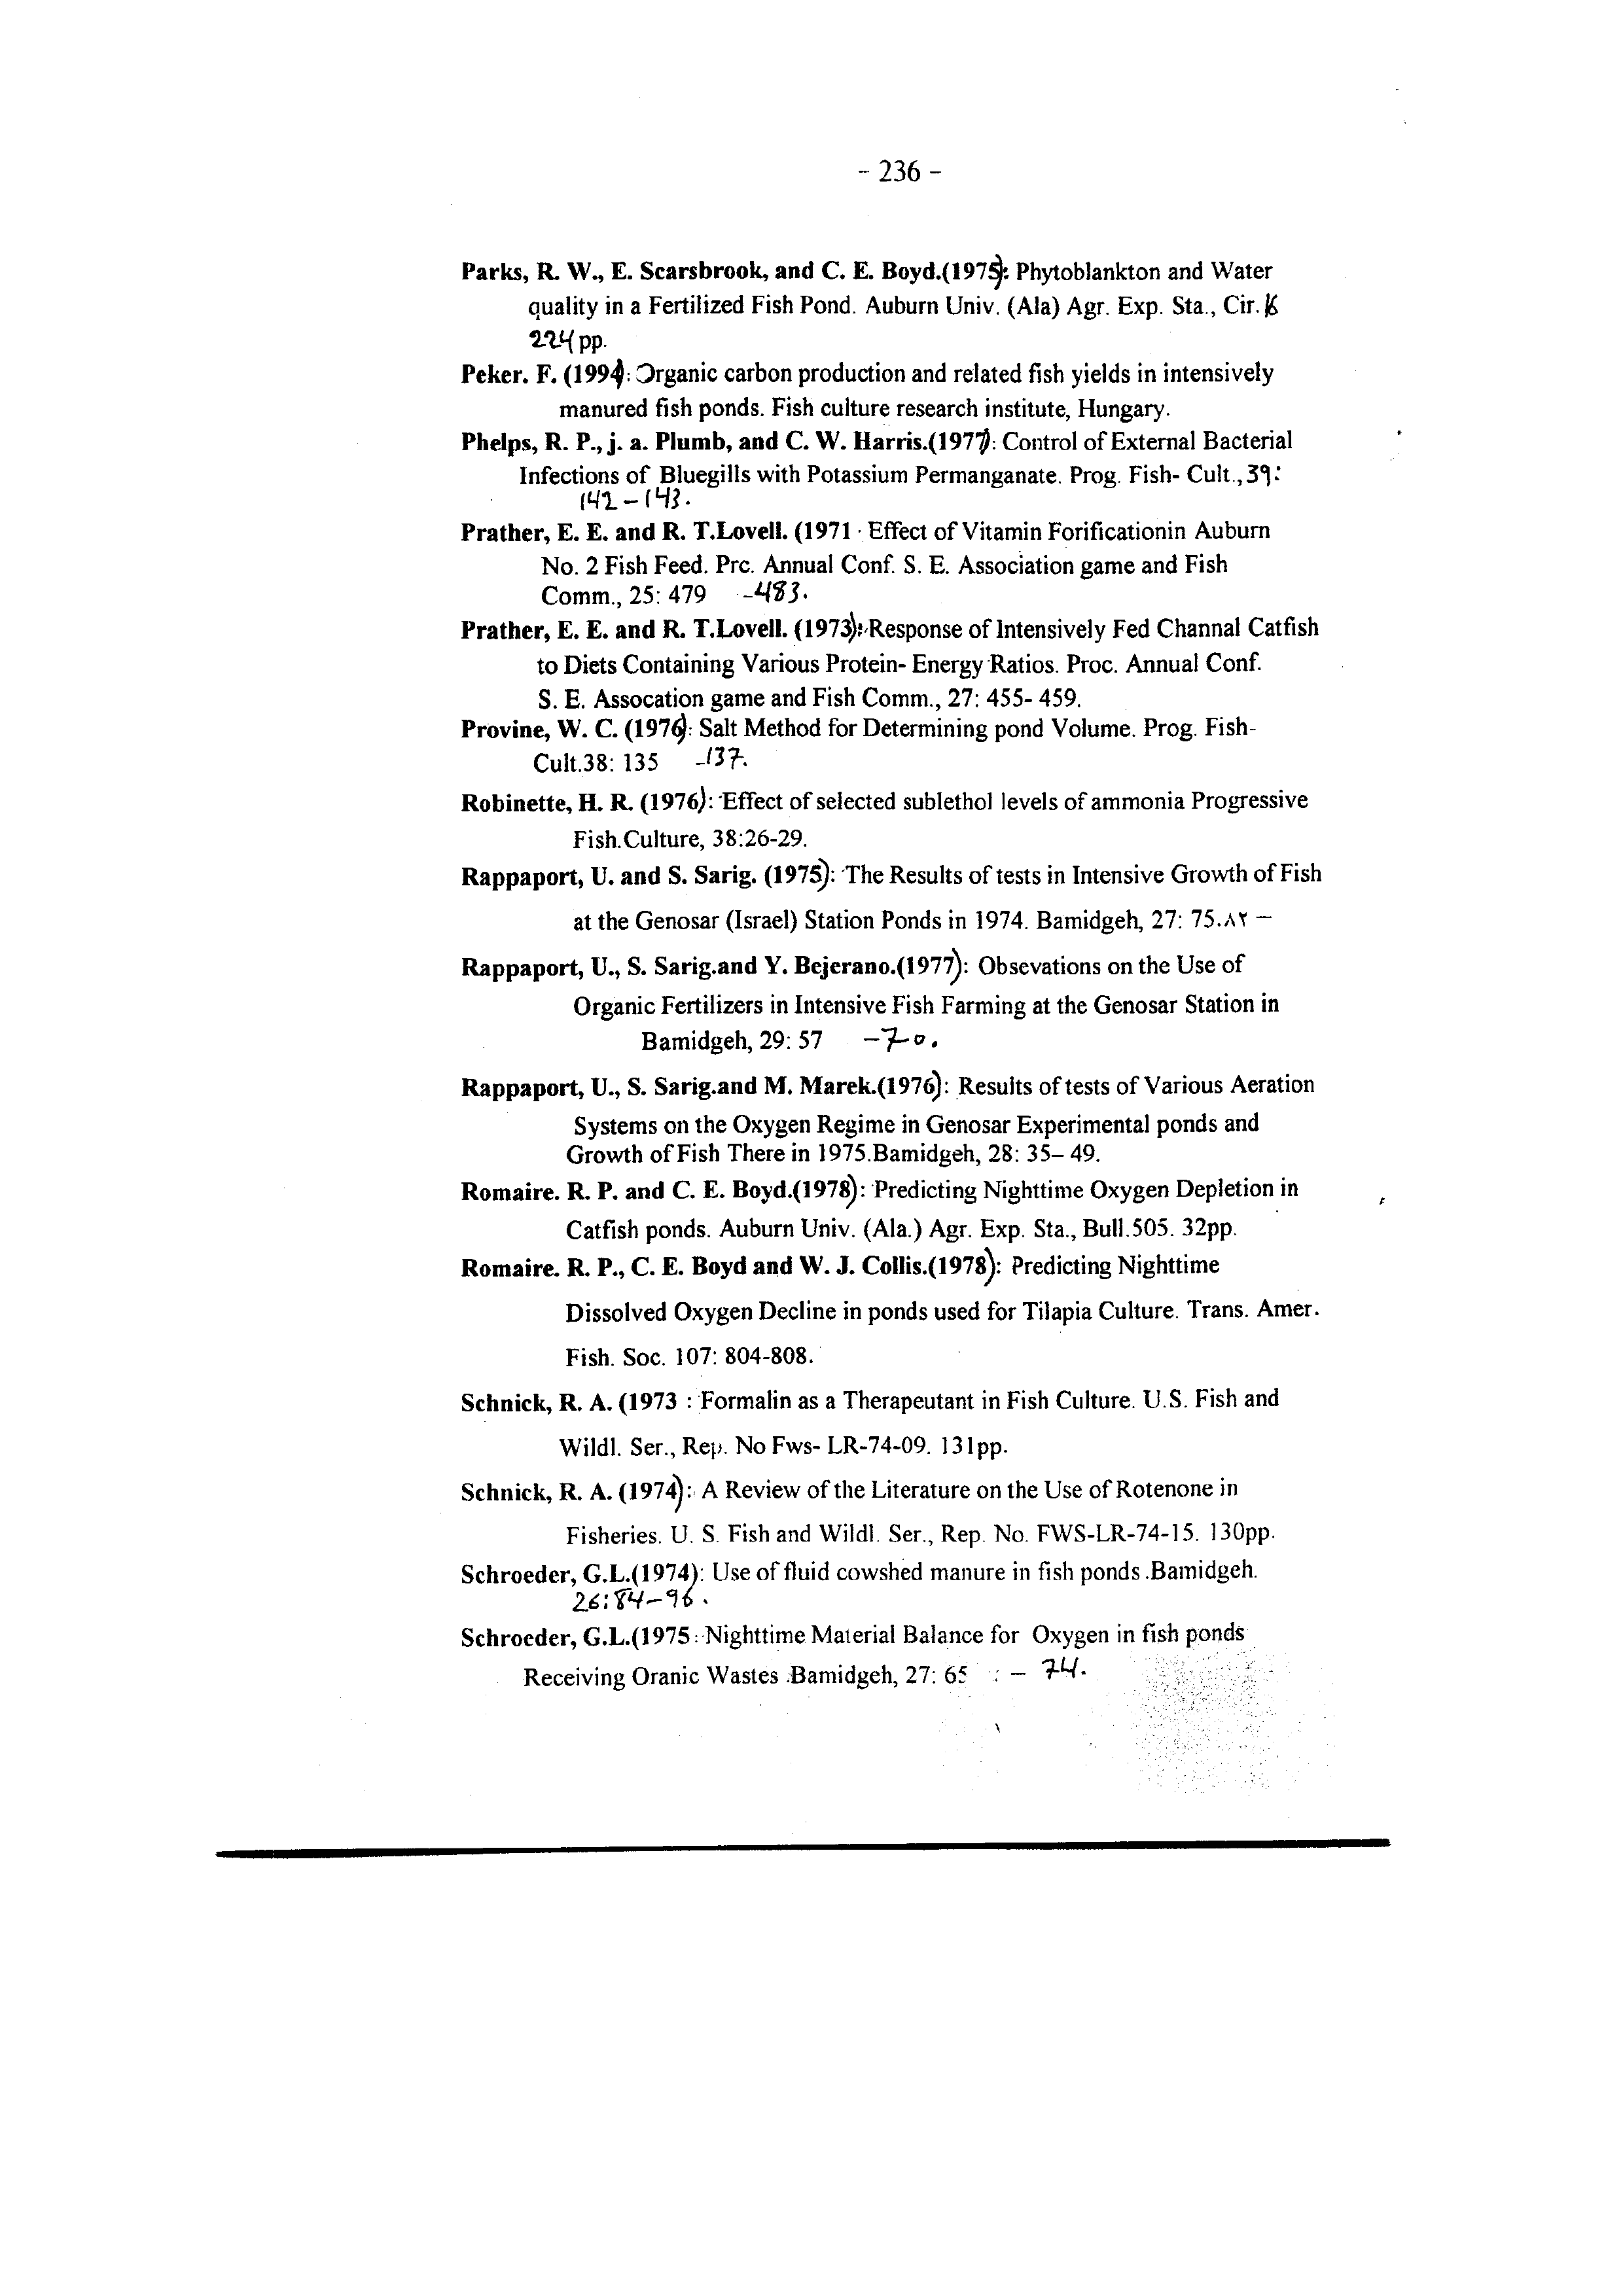 - 236 -
Parks, R. W., E. Scarsbrook, and C. E. Boyd.(1975): Phytoblankton and Water
quality in a Fertilized Fish Pond. Auburn Univ. (Ala) Agr. Exp. Sta., Cir.
224 pp.
Peker. F. (1994): Organic carbon production and related fish yields in intensively
manured fish ponds. Fish culture research institute, Hungary.
Phelps, R. P., j. a. Plumb, and C. W. Harris.(1977): Control of External Bacterial
Infections of Bluegills with Potassium Permanganate. Prog. Fish- Cult., 39:
142-143.
Prather, E. E. and R. T.Lovell. (1971 · Effect of Vitamin Forificationin Auburn
No. 2 Fish Feed. Prc. Annual Conf. S. E. Association game and Fish
Comm., 25: 479 -483.
Prather, E. E. and R. T.Lovell. (1973): Response of Intensively Fed Channal Catfish
to Diets Containing Various Protein- Energy Ratios. Proc. Annual Conf.
S. E. Assocation game and Fish Comm., 27: 455- 459.
Provine, W. C. (1976): Salt Method for Determining pond Volume. Prog. Fish-
Cult.38: 135 -137.
Robinette, H. R. (1976): Effect of selected sublethol levels of ammonia Progressive
Fish.Culture, 38:26-29.
Rappaport, U. and S. Sarig. (1975): The Results of tests in Intensive Growth of Fish
at the Genosar (Israel) Station Ponds in 1974. Bamidgeh, 27: 75.٨٢ –
Rappaport, U., S. Sarig.and Y. Bejerano.(1977): Obsevations on the Use of
Organic Fertilizers in Intensive Fish Farming at the Genosar Station in
Bamidgeh, 29: 57 -70.
Rappaport, U., S. Sarig.and M. Marek.(1976): Results of tests of Various Aeration
Systems on the Oxygen Regime in Genosar Experimental ponds and
Growth of Fish There in 1975.Bamidgeh, 28: 35– 49.
Romaire. R. P. and C. E. Boyd.(1978): Predicting Nighttime Oxygen Depletion in
Catfish ponds. Auburn Univ. (Ala.) Agr. Exp. Sta., Bull.505. 32pp.
Romaire. R. P., C. E. Boyd and W. J. Collis.(1978): Predicting Nighttime
Dissolved Oxygen Decline in ponds used for Tilapia Culture. Trans. Amer.
Fish. Soc. 107: 804-808.
Schnick, R. A. (1973 : Formalin as a Therapeutant in Fish Culture. U.S. Fish and
Wildl. Ser., Rep. No Fws- LR-74-09. 131pp.
Schnick, R. A. (1974): A Review of the Literature on the Use of Rotenone in
Fisheries. U. S. Fish and Wildl. Ser., Rep. No. FWS-LR-74-15. 130pp.
Schroeder, G.L.(1974): Use of fluid cowshed manure in fish ponds .Bamidgeh.
26:84-96.
Schroeder, G.L.(1975 : Nighttime Material Balance for Oxygen in fish ponds
Receiving Oranic Wastes .Bamidgeh, 27: 65 – 74.